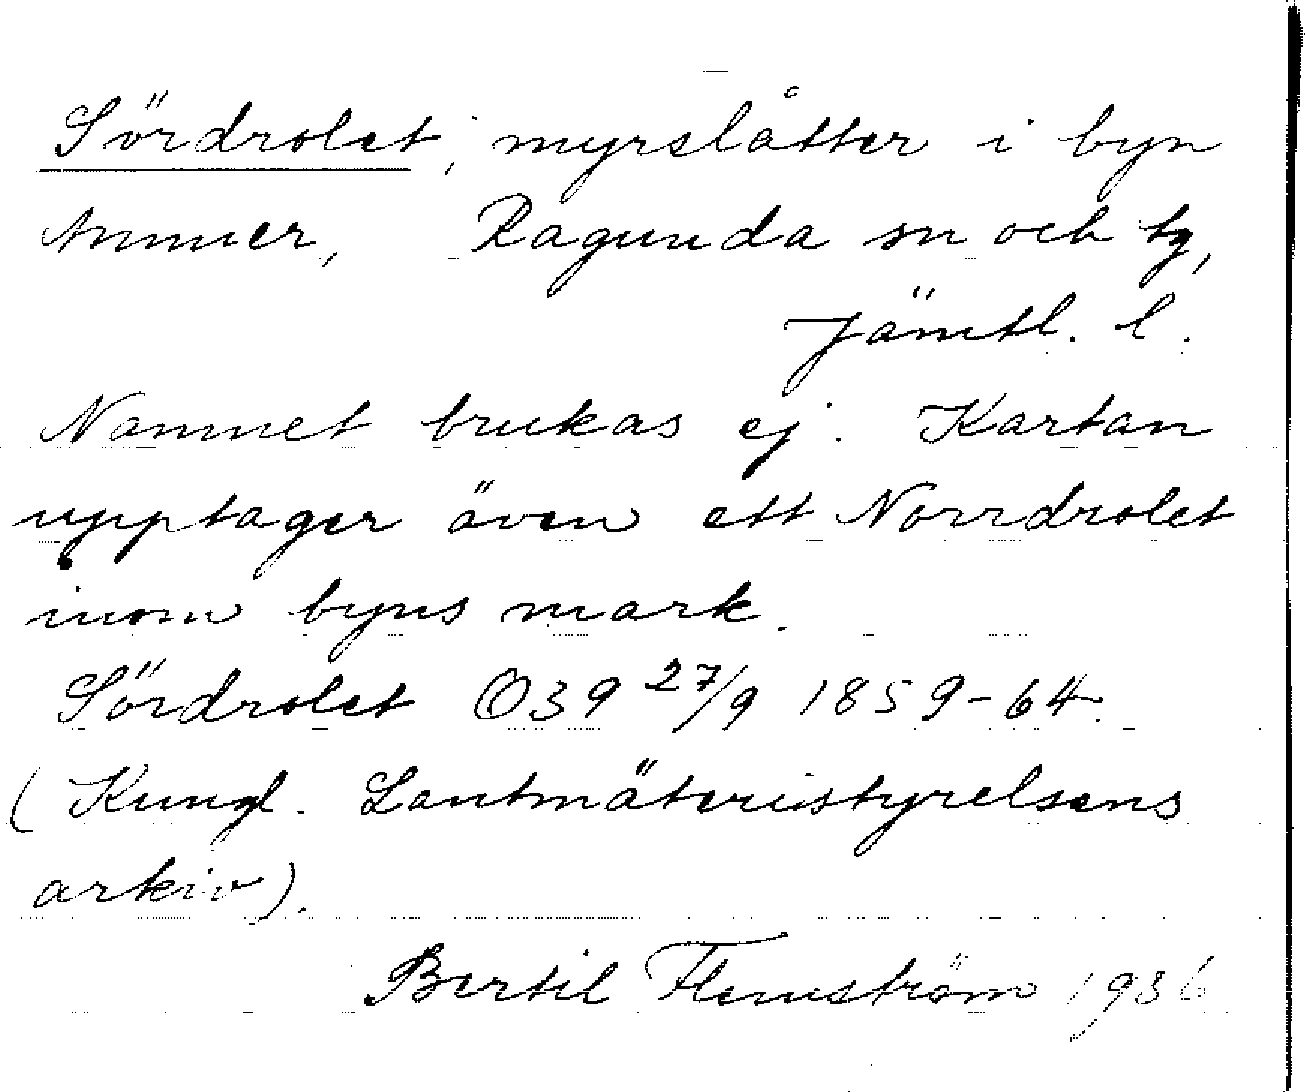 Sördrolet, myrslåtter i byn
Ammer, Ragunda sn och tg,
Jämtl. l.
Namnet brukas ej. Kartan
upptager även ett Norrdrolet
inom byns mark.
Sördrolet O39 27/9 1859-64.
(Kungl. Lantmäteristyrelsens
arkiv).
Bertil Flemström 1936